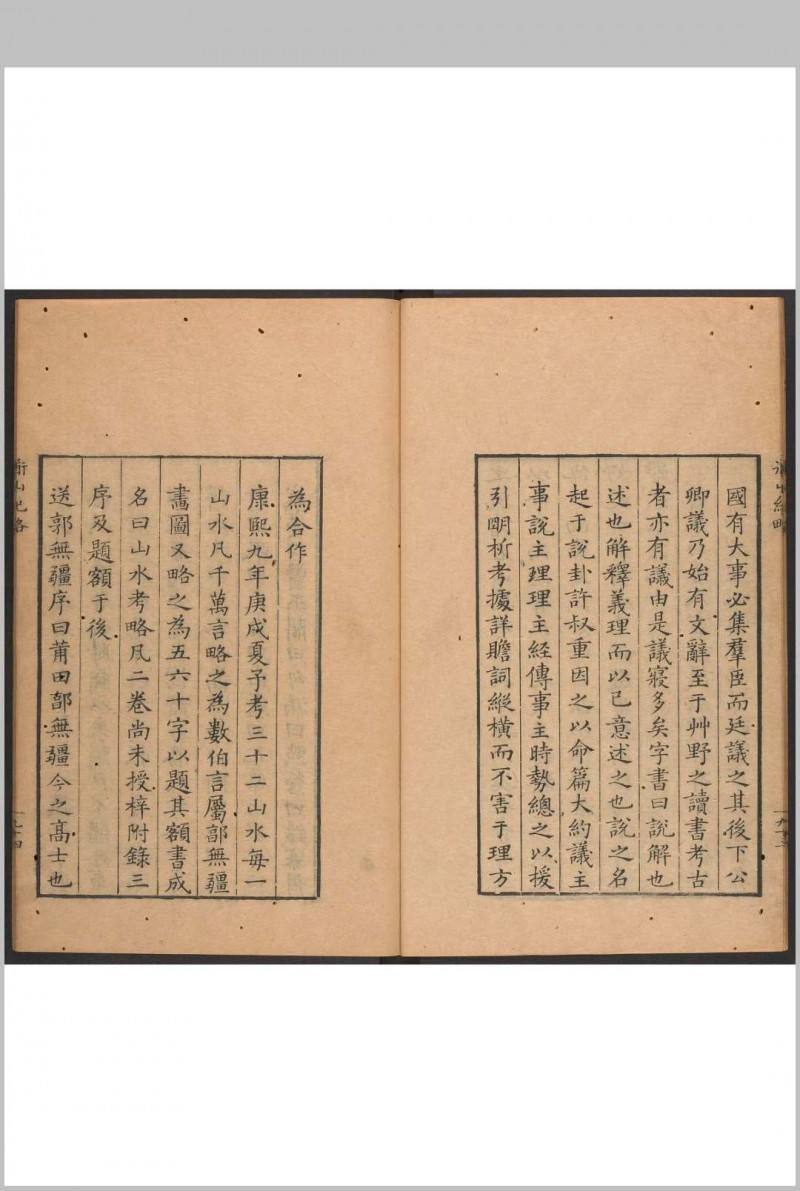 國有大事必集羣臣而廷議之其後下公
卿議乃始有文辭至于艸野之讀書考古
者亦有議由是議寢多矣字書曰說解也
述也解釋義理而以己意述之也說之名
起于說卦許叔重因之以命篇大約議主
事說主理理主經傳事主時勢總之以援
引明析考據詳贍詞縱橫而不害于理方
九十三
為合作
康熙九年庚戌夏予考三十二山水每一
山水凡千萬言略之為數伯言屬郭無疆
畵圖又略之為五六十字以題其額書成
名曰山水考略凡二卷尚未授梓附錄三
序及題額于後
送郭無疆序曰莆田郭無疆今之高士也
九十四